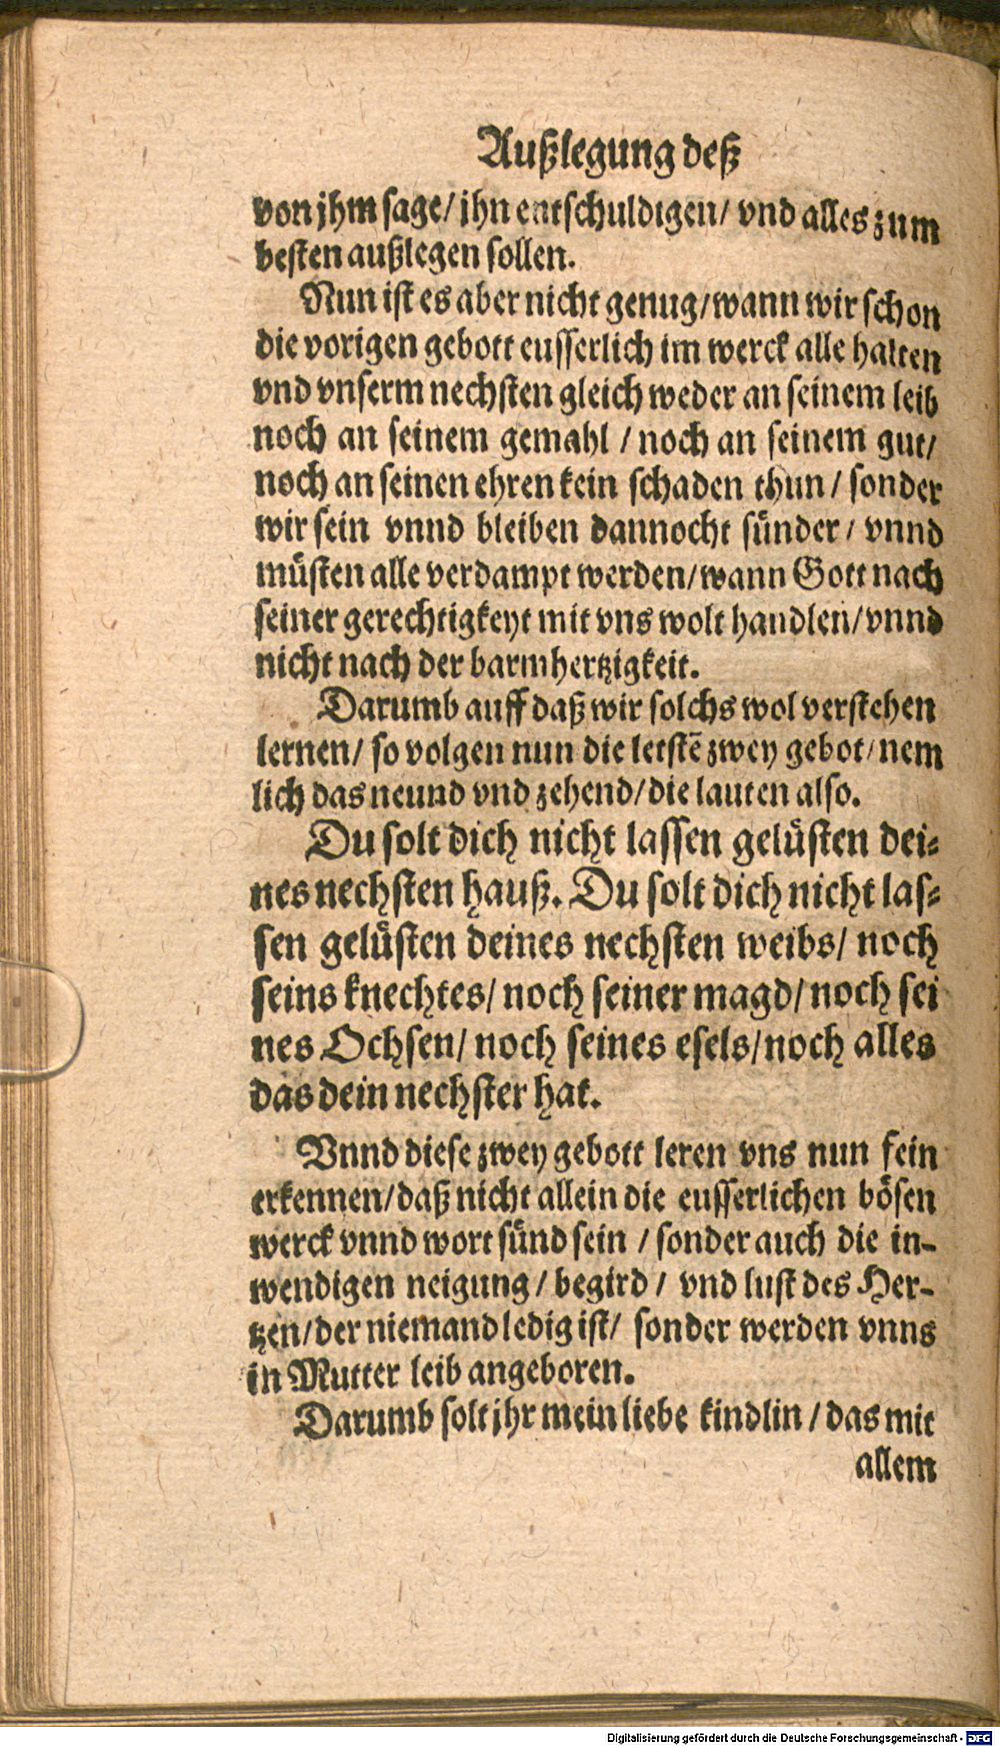 Außlegung deß
von jhm sage/ jhn entschuldigen/ vnd alles zum
besten außlegen sollen.
Nun ist es aber nicht genug/ wann wir schon
die vorigen gebott eusserlich im werck alle halten
vnd vnserm nechsten gleich weder an seinem leib
noch an seinem gemahl / noch an seinem gut/
noch an seinen ehren kein schaden thun / sonder
wir sein vnnd bleiben dannocht sünder / vnnd
müsten alle verdampt werden/ wann Gott nach
seiner gerechtigkeyt mit vns wolt handlen/ vnnd
nicht nach der barmhertzigkeit.
Darumb auff daß wir solchs wol verstehen
lernen/ so volgen nun die letstē zwey gebot/ nem
lich das neund vnd zehend/ die lauten also.
Du solt dich nicht lassen gelüsten dei⸗
nes nechsten hauß. Du solt dich nicht las⸗
sen gelüsten deines nechsten weibs/ noch
seins knechtes/ noch seiner magd/ noch sei
nes Ochsen/ noch seines esels/ noch alles
das dein nechster hat.
Vnnd diese zwey gebott leren vns nun fein
erkennen/ daß nicht allein die eusserlichen bösen
werck vnnd wort sünd sein / sonder auch die in-
wendigen neigung / begird / vnd lust des Her-
tzen/ der niemand ledig ist/ sonder werden vnns
in Mutter leib angeboren.
Darumb solt jhr mein liebe kindlin / das mit
allem
Digitalisierung gefördert durch die Deutsche Forschungsgemeinschaft - DFG